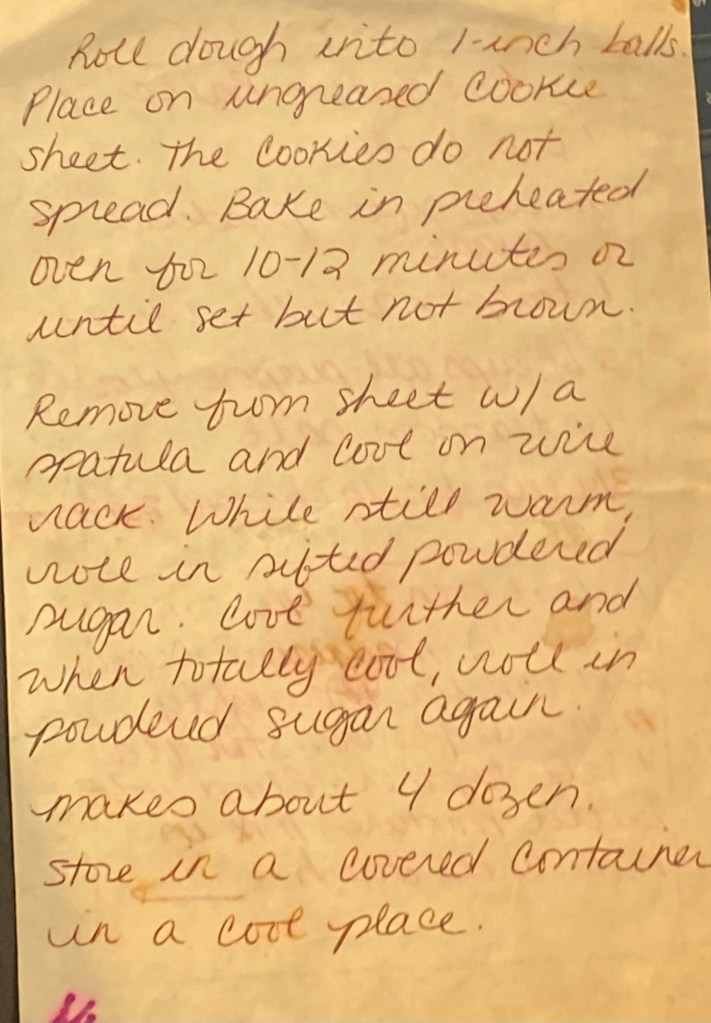 Roll dough into 1-inch balls.
Place on ungreased cookie
sheet. The cookies do not
spread. Bake in preheated
oven for 10-12 minutes or
until set but not brown.
Remove from sheet w/a
spatula and cool on wire
rack. While still warm,
roll in sifted powdered
sugar. Cool further and
when totally cool, roll in
powdered sugar again.
makes about 4 dozen.
Store in a covered container
in a cool place.